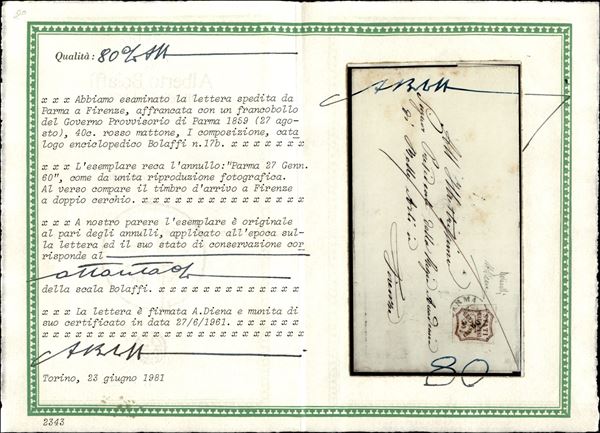 Qualità: 80%
x x x Abbiamo esaminato la lettera spedita da
Parma a Firenze, affrancata con un francobollo
del Governo Provvisorio di Parma 1859 (27 ago-
sto), 40c. rosso mattone, I composizione, cata
logo enciclopedico Bolaffi n.17b. x x x x x x x
x x x L'esemplare reca l'annullo:"Parma 27 Genn.
60", come da unita riproduzione fotografica.
Al verso compare il timbro d'arrivo a Firenze
a doppio cerchio. x x x x x x x x x x x x x x x
x x x A nostro parere l'esemplare è originale
al pari degli annulli, applicato all'epoca sul-
la lettera ed il suo stato di conservazione cor
risponde al
ottanta%
della scala Bolaffi.
x x x La lettera è firmata A.Diena e munita di
suo certificato in data 27/6/1961. x x x x x x x
Torino, 23 giugno 1981
2343
Belle Arti di
Firenze
80